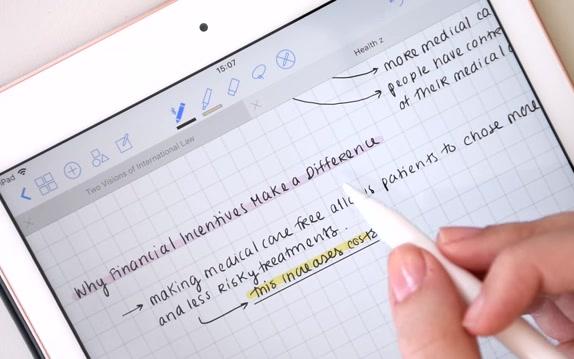 15:07
iPad
Health 2
Two Visions of International Law
→ more medical ca
→ people have contr
of their medical
Why Financial Incentives Make a Difference
→ making medical care free allows patients to chose more
and less risky treatments.
→ this increases costs